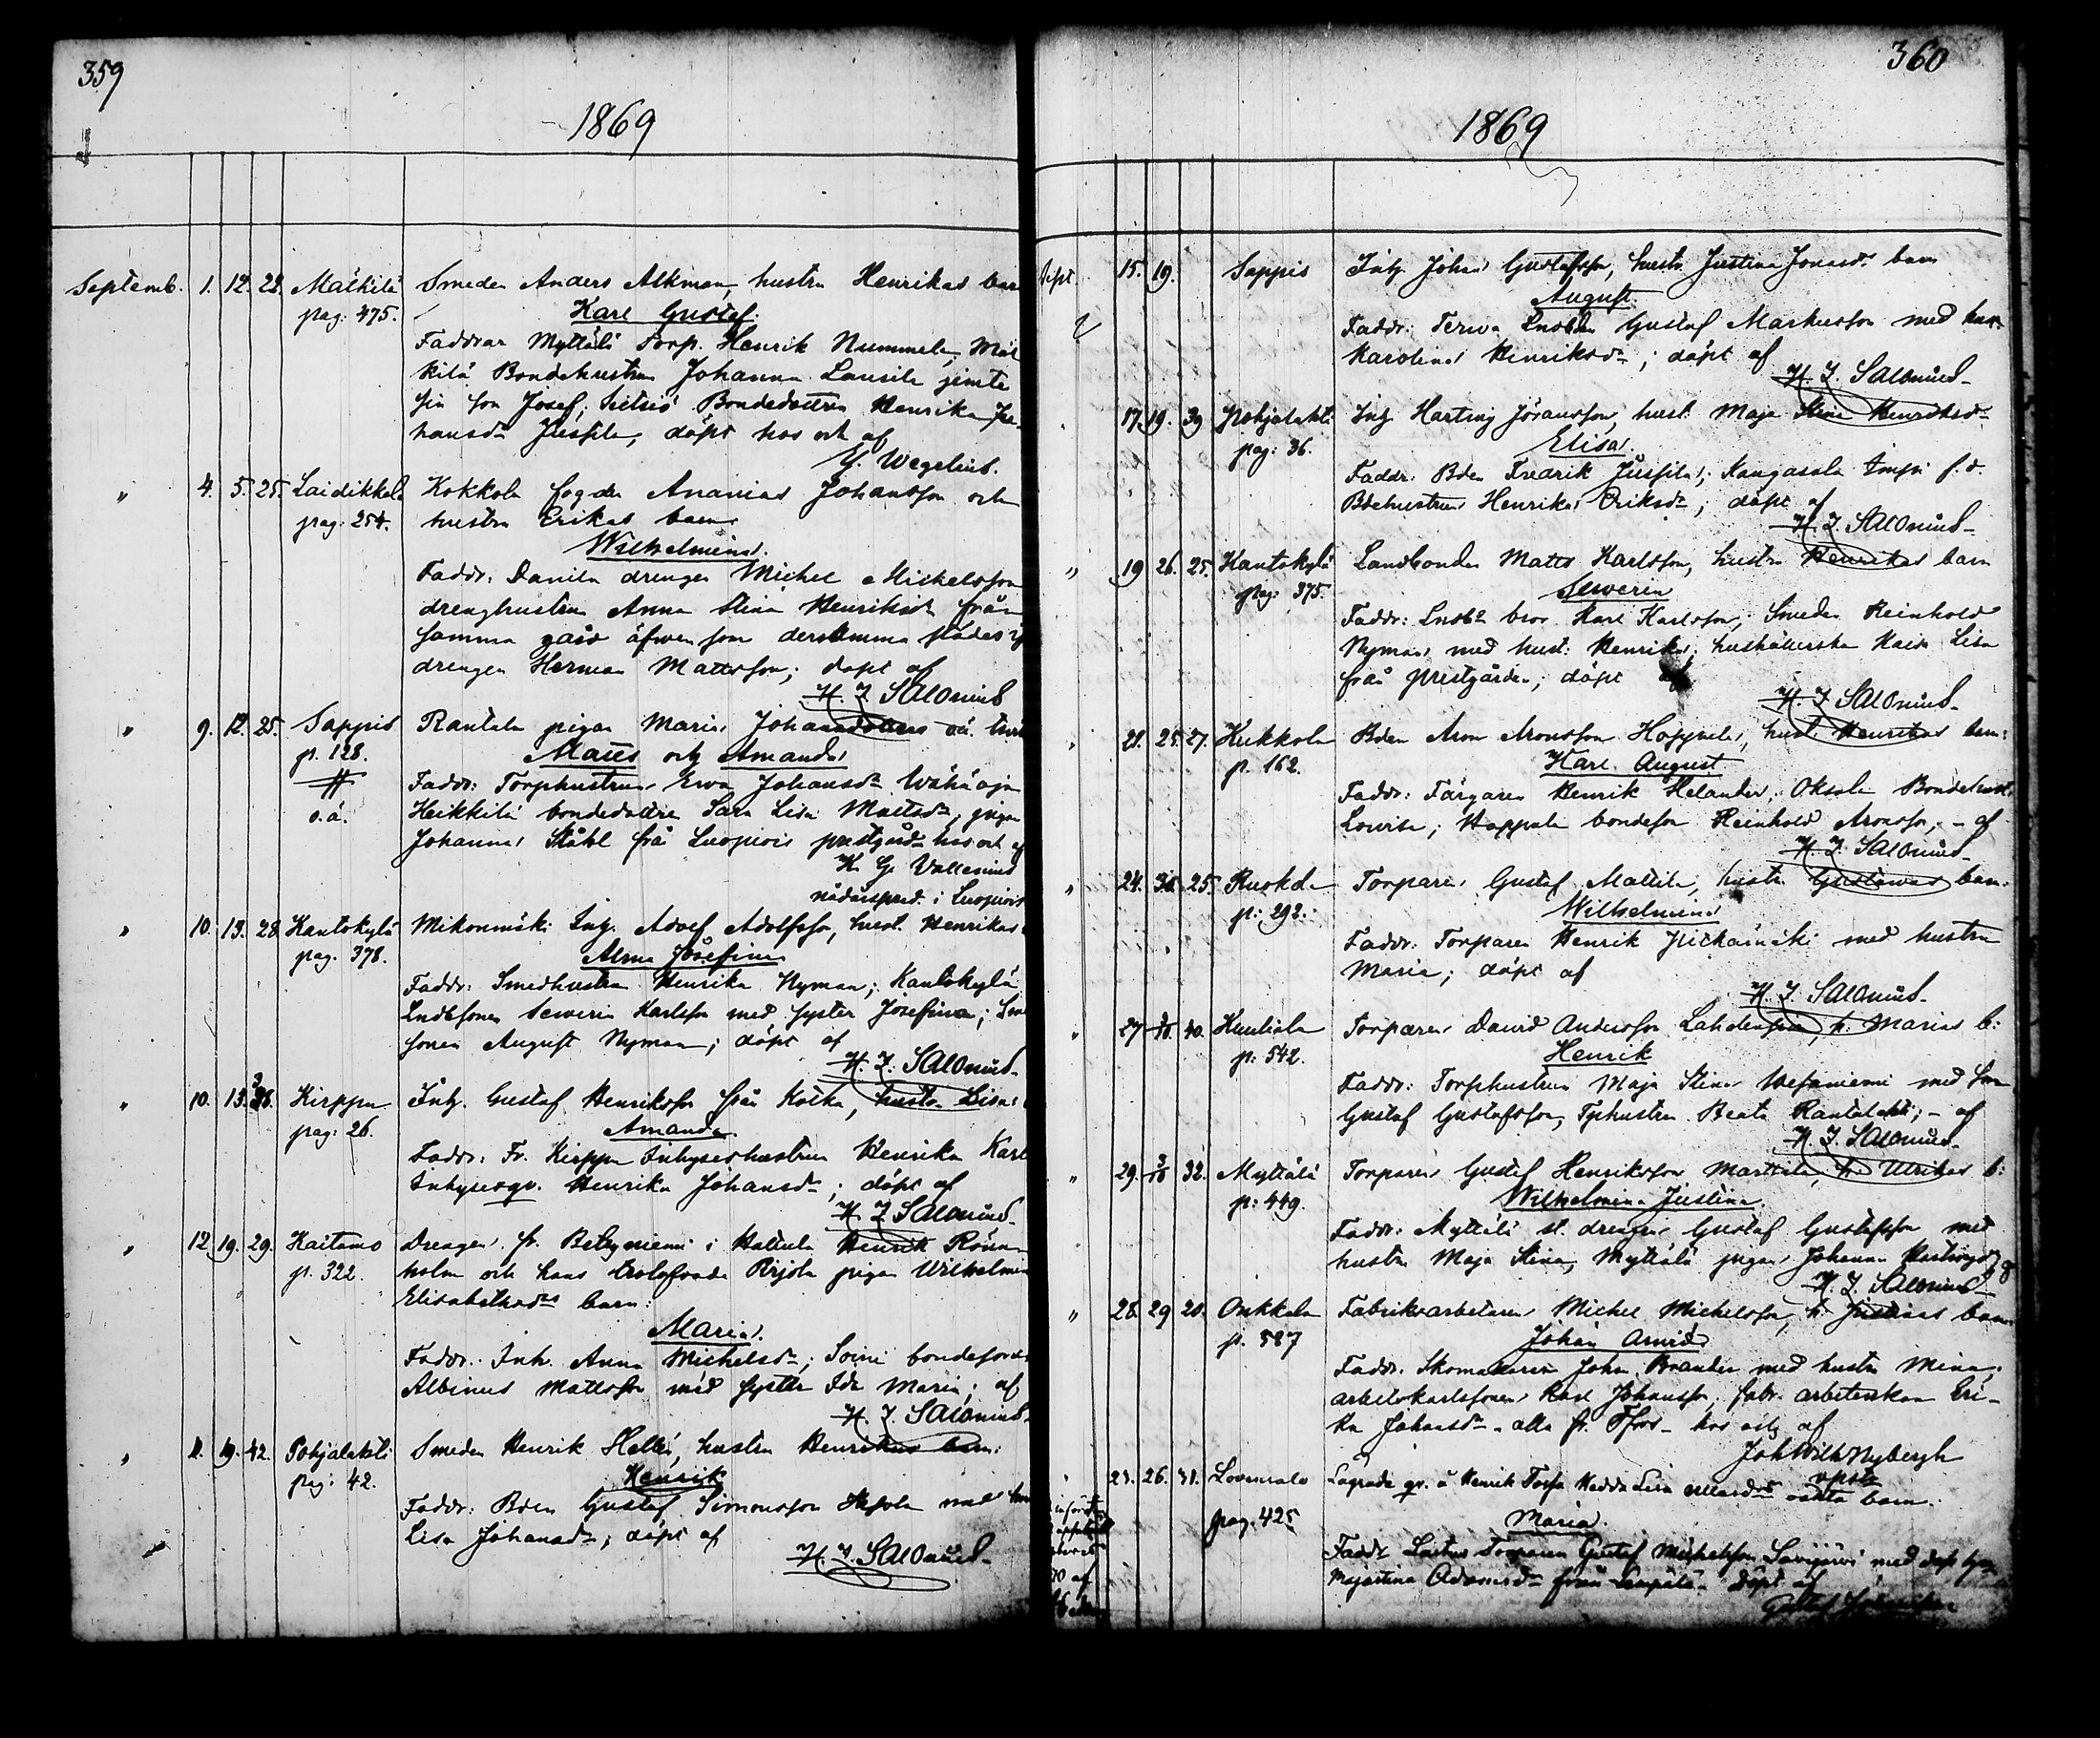 359
1869
Septemb. 1. 12. 22. Mälkilä Smeden Anders Alkman, hustru Henrikas barn
pag: 475. Karl Gustaf.
Faddrar Myttälä Torp. Henrik Nummela, Mäl
kilä Bondehustrun Johanna Lausila jemte
sin son Josef; Bondedottren Henrika Jo-
hansdr Jussila, döpt hos och af
Y. Wegelius.
" 4. 5. 25. Laidikkala Kokkola fogden Ananias Johansson och
pag: 254. hustru Erikas barn
Wilhelmina.
Faddr: Danila drengen Michel Mickelsson
drenghustrun Anna Stina Henriksdr från
samma gård äfven som dersamma städes
drengen Herman Mattsson; döpt af
H. J. Salonius
" 9. 12. 25. Sappis Rantala pigan Maria Johansdotters oä.
p. 128. Matts och Amanda
o.ä. Faddr: Torphustrun Ewa Johansdr Wähäoja
Heikkilä bondedottren Sara Lisa Mattsdr, pigan
Johanna Ståhl från Luopiois prestgård hos och af
K. G. Vallenius
nådårspred. i Luopiois
" 10. 13. 28. Kantokylä Mikonmäki Inh. Adolf Adolfsson, hust. Henrikas
pag. 378. Alma Josefina
Faddr: Smedhustrun Henrika Nyman; Kantokylä
Lndbsonen Sewerin Karlsson med syster Josefina;
sonen August Nyman; döpt af
H. J. Salonius
" 10. 13. 36. Kirppu Inh. Gustaf Henriksson från Kotka, hustru Lisas
pag: 26. Amanda.
Faddr: Fr. Kirppu Inhyseshustrun Henrika Karl
Inhysesqv. Henrika Johansdr; döpt af
H. J. Salonius
" 12. 19. 29. Kaitamo Drengen fr. Betyniemi i Hattula Henrik Rönn-
p. 322. holm och hans trolofvade Pirjola pigan Wilhelmina
Elisabethsdrs barn:
Maria.
Faddr: Inh. Anna Michelsdr; Soini bondesonen
Albinus Mattsson med syster Ida Maria; af
H. J. Salonius
" 11. 19. 42. Pohjalahti Smeden Henrik Hellén, hustru Henrikas barn:
pag: 42. Henrik
Faddr: Bden Gustaf Simonsson Hepola med
Lisa Johansdr; döpt af
H. J. Salonius
360
1869
Sept. 15. 19. Sappis Inh. Johan Gustafsson, hustr. Justina Jonasdrs barn
August.
Faddr: Terva Lndbden Gustaf Markusson med hustr.
Karolina Henriksdr; döpt af
H. J. Salonius
17. 19. 39 Pohjalahti Inh. Hartvig Jöransson, hust. Maja Stina Henriksdr
pag: 36. Elisa.
Faddr: Bden Fredrik Jussila; Kangasala f.d.
Bdehustrun Henrika Eriksdr; döpt af
H. J. Salonius
" 19 26. 25. Kantokylä Landbonden Matts Karlsson, hustru Henrikas barn
pag: 375. Sewerin
Faddr: Lndbs bror Karl Karlsson, Smeden Reinhold
Nyman med hust: Henrika; hushållerskan Lisa
från prestgården; döpt af
H. J. Salonius
" 21. 25. 27. Kukkola Bden Aron Aronsson Hoppula, hust. Henrikas barn:
p. 162. Karl August
Faddr: Färgaren Henrik Helander, Oksala Bondehust.
Lovisa; Hoppula bondeson Reinhold Aronsson; - af
H. J. Salonius
" 24. 26. 25. Ruokola Torparen Gustaf Mattila, hustru Gustavas barn.
p: 292. Wilhelmina
Faddr: Torparen Henrik Pitkämäki med hustru
Maria; döpt af
H. J. Salonius
" 27 3/10. 40. Kuuliala Torparen David Andersson Lahdenperä, h. Marias b:
p: 542. Henrik
Faddr: Torphustrun Maja Stina Wefaniemi med son
Gustaf Gustafsson, Tphustrun Beata Rantalahti; - af
H. J. Salonius
" 29. 3/10 32. Myttälä Torparen Gustaf Henriksson Marttila, h. Ulrikas b:
p: 449. Wilhelmina Justina
Faddr: Myttälä st. drengen Gustaf Gustafsson med
hustru Maja Stina, Myttälä pigan Johanna Hartvigsdr; af
H. J. Salonius
" 28. 29 20. Onkkala Fabriksarbetaren Michel Michelsson, h. Justinas barn
p. 587 Johan Arvid
Faddr. Skomakaren John. Brander med hustru Mina;
arbetskarlsonen Karl Johansson; fabr. arbeterskan Eri-
ka Johansdr - alla fr. Tfors - hos och af
Joh Wilh Nybergh
23. 26. 31. Lovensalo Lagrade qv. å Henrik Torpa Hedda Lisa oäkta barn.
pag. 425 Maria.
Faddr Torparen Gustaf Michelsson Savijärvi med
Majastina Adamsdr från Lempälä - Döpt af